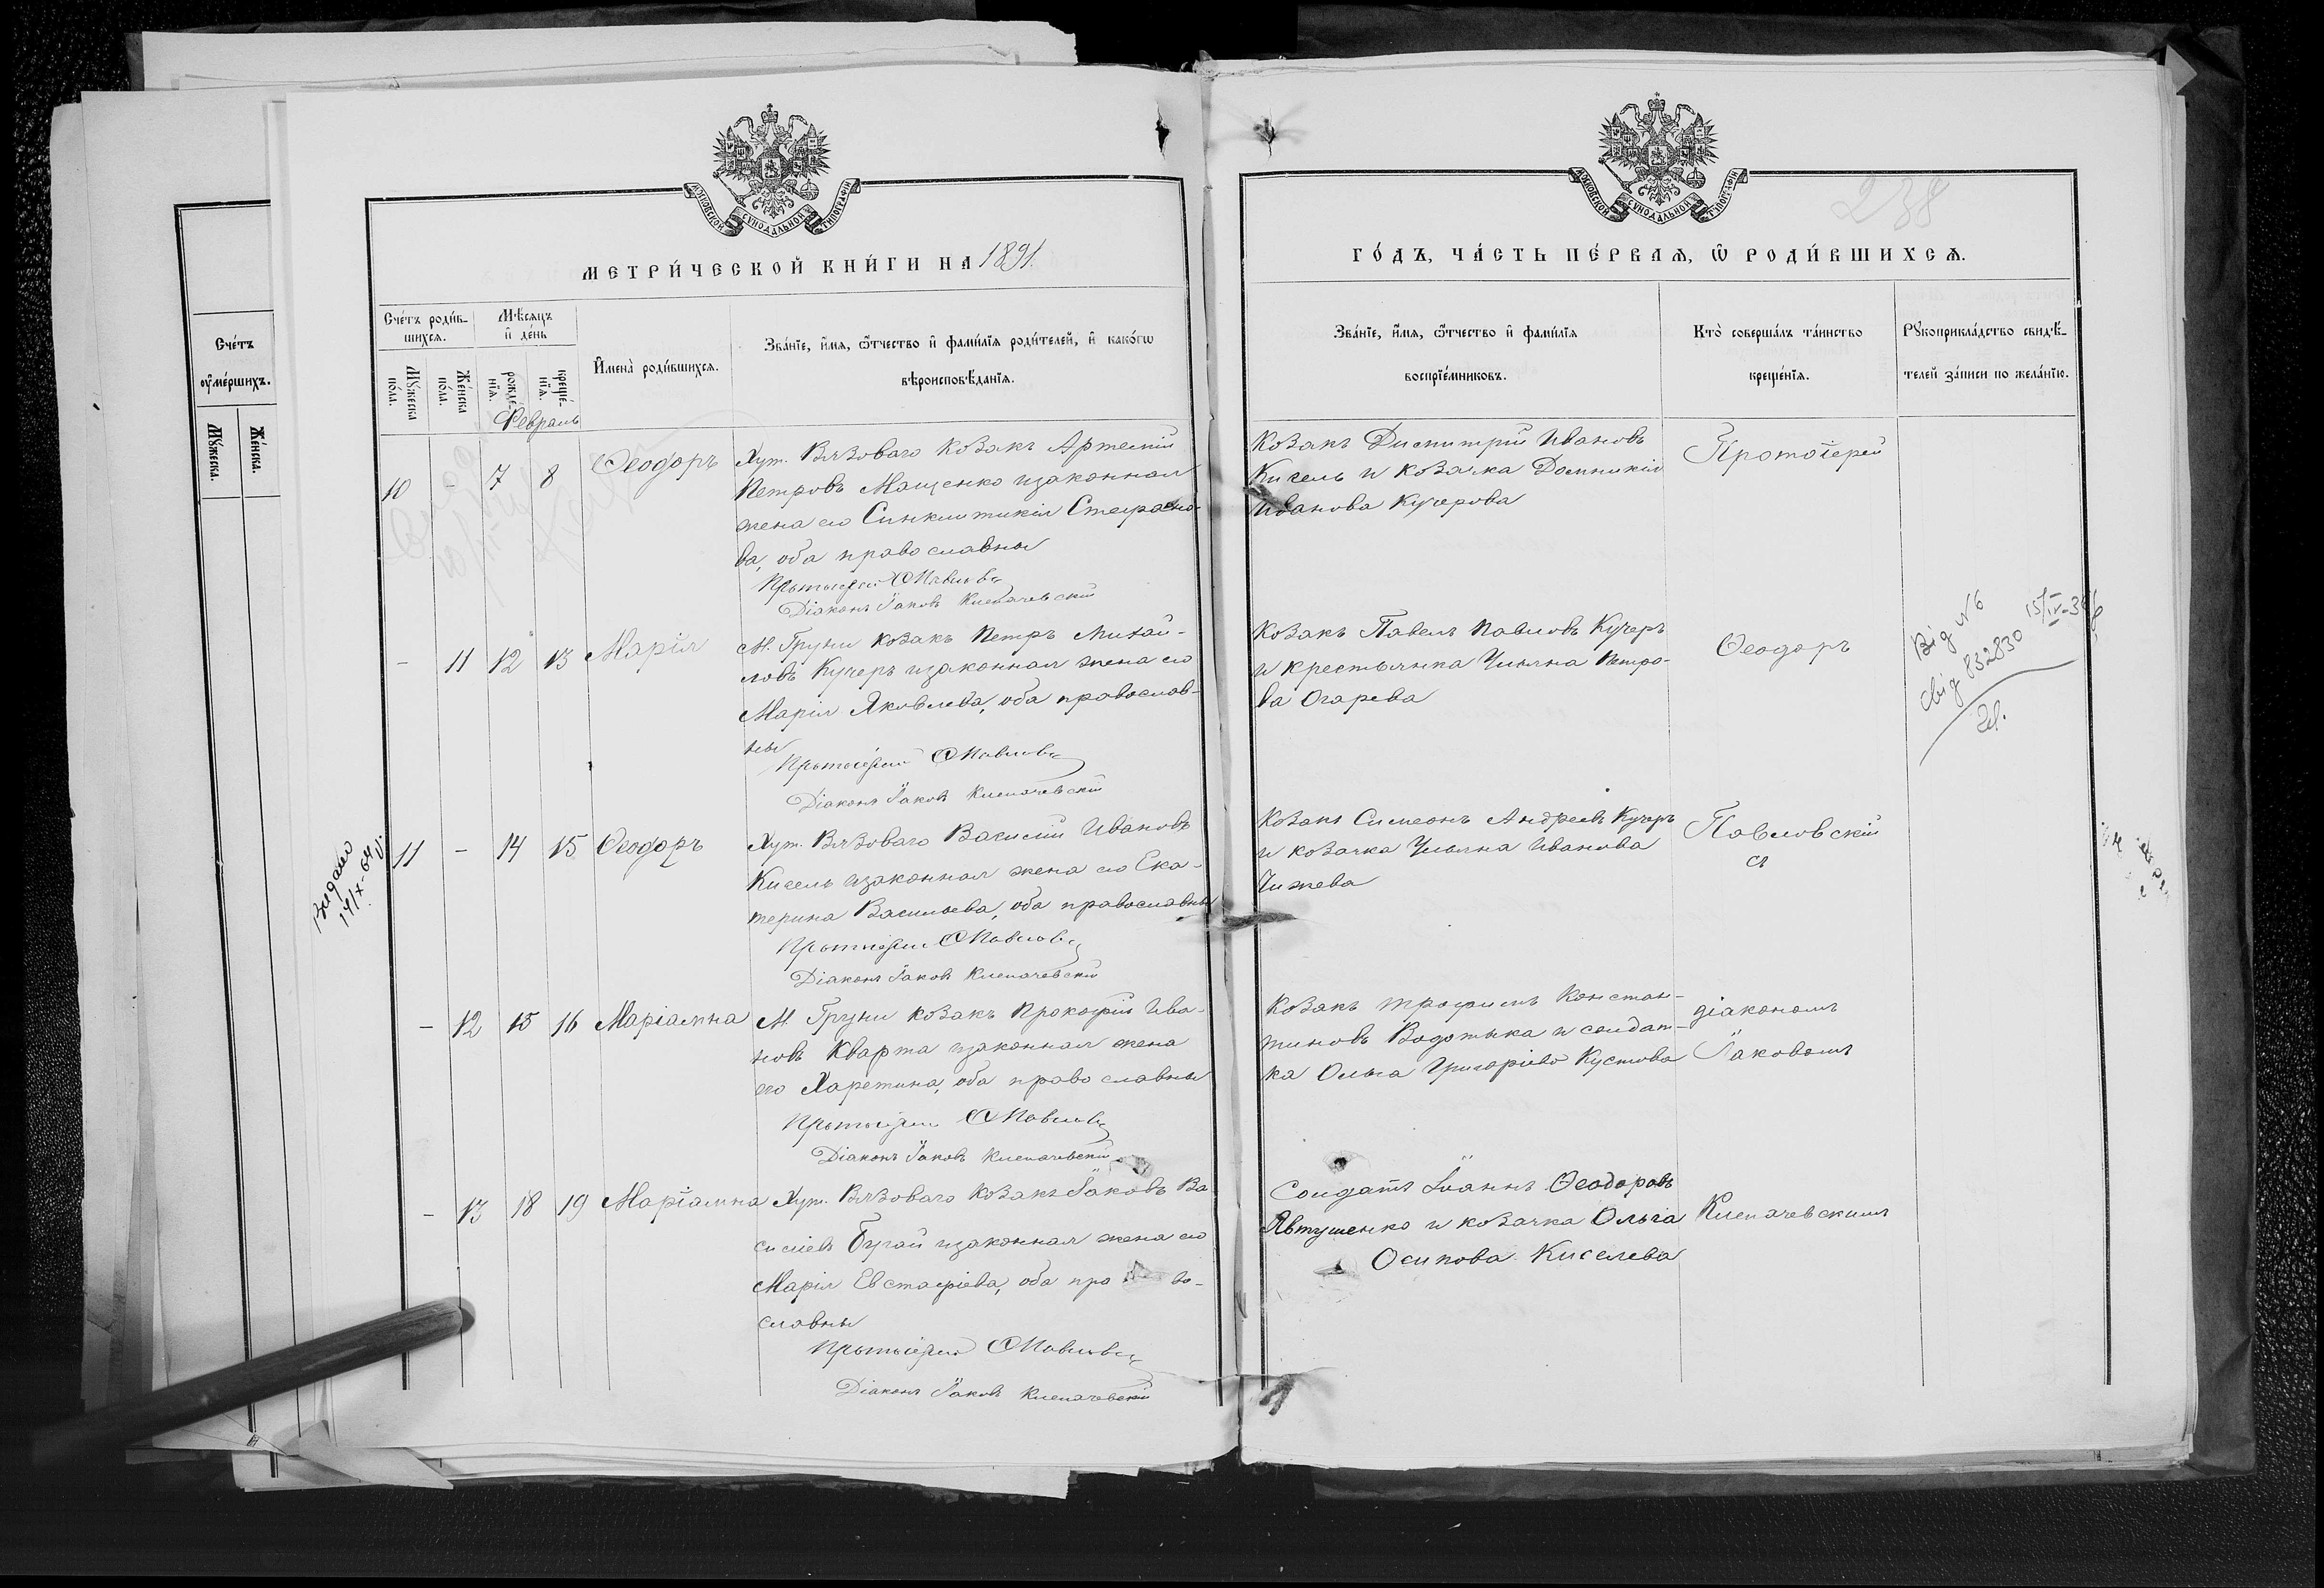 МОСКОВСКОЙ СУНОДАЛЬНОЙ ТИПОГРАФІИ
МЕТРИ́ЧЕСКОЙ КНИ́ГИ НА 1891.
Сче́тъ роди́в-
шихсѧ.
Мѣ́сѧцъ
и҆ де́нь
И҆мена̀ роди́вшихсѧ.
Зва́нїе, и҆́мѧ, ѻ҆́тчество и҆ фами́лїѧ роди́телей, и҆ како́гѡ
вѣроисповѣ́данїѧ.
Мꙋ́жеска
по́ла.
Же́нска
по́ла.
рожде́-
нїѧ.
креще́-
нїѧ.
Февраль
10 - 7 8 Ѳеодоръ
Хут. Вязоваго козакъ Артемій
Петровъ Мащенко изаконная
жена его Синклитикія Стефано-
ва, оба православны
Протоіерей Ѳ Павловс
Діаконъ Іаковъ Клепачевскій
- 11 12 13 Марія
М. Груни козакъ Петръ Михай-
ловъ Кучеръ изаконная жена его
Марія Яковлева, оба православ-
ны
Протоіерей Ѳ Павловс
Діаконъ Іаковъ Клепачевскій
11 - 14 15 Ѳеодоръ
Хут. Вязоваго Василій Ивановъ
Кисель изаконная жена его Ека-
терина Васильева, оба православны
Протоіерей Ѳ Павловс
Діаконъ Іаковъ Клепачевскій
- 12 15 16 Маріамна
М. Груни козакъ Прокофій Ива-
новъ Кварта изаконная жена
его Харетина, оба православны
Протоіерей Ѳ Павловс
Діаконъ Іаковъ Клепачевскій
- 13 18 19 Маріамна
Хут. Вязоваго козакъ Іаковъ Ва
силіевъ Бугай изаконная жена его
Марія Евстафіева, оба про во-
славны
Протоіерей Ѳ Павловс
Діаконъ Іаковъ Клепачевскій
Видано
14/X-64
Сче́тъ
ᲂу҆ме́ршихъ.
Мꙋ́жеска.
Же́нска.
238
МОСКОВСКОЙ СУНОДАЛЬНОЙ ТИПОГРАФІИ
ГО́ДЪ, ЧА́СТЬ ПЕ́РВАѦ, Ѡ҆ РОДИ́ВШИХСѦ.
Зва́нїе, и҆́мѧ, ѻ҆́тчество и҆ фами́лїѧ
воспрїе́мниковъ.
Кто̀ соверша́лъ та́инство
креще́нїѧ.
Рꙋкоприкла́дство свидѣ́-
телей за́писи по жела́нїю.
Козакъ Димитрій Ивановъ
Кисель и козачка Домникія
Иванова Кучерова
Протоіерей
Козакъ Павелъ Павловъ Кучеръ
и крестьянка Ульяна Петро-
ва Огарева
Ѳеодоръ
Від №6
свід 832830
15/IV-36
Козакъ Симеонъ Андреевъ Кучеръ
и козачка Ульяна Иванова
Чижева
Павловскій
съ
Козакъ Трофимъ Констан-
тиновъ Водотыка и солдат-
ка Ольга Григоріева Кустова
діакономъ
Іаковомъ
Солдатъ Іоаннъ Ѳеодоровъ
Явтушенко и козачка Ольга
Осипова Киселева
Клепачевскимъ